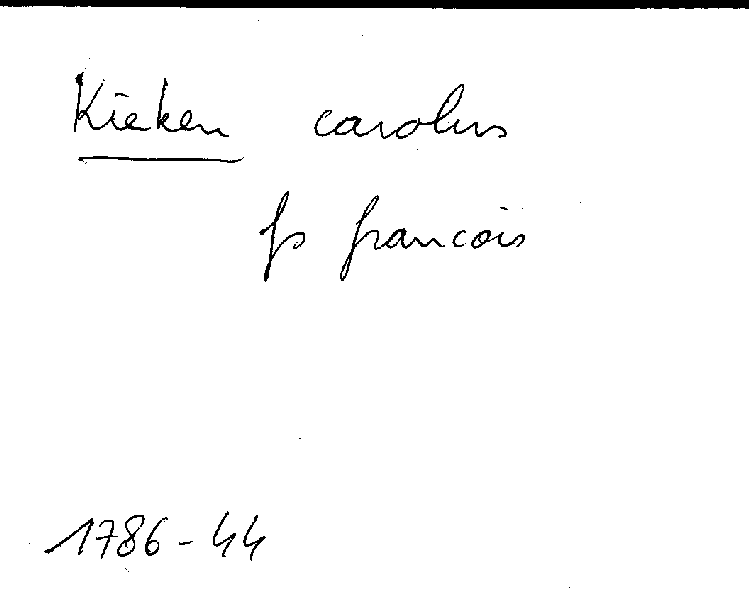 Kieken carolus
fs francois
1786-44